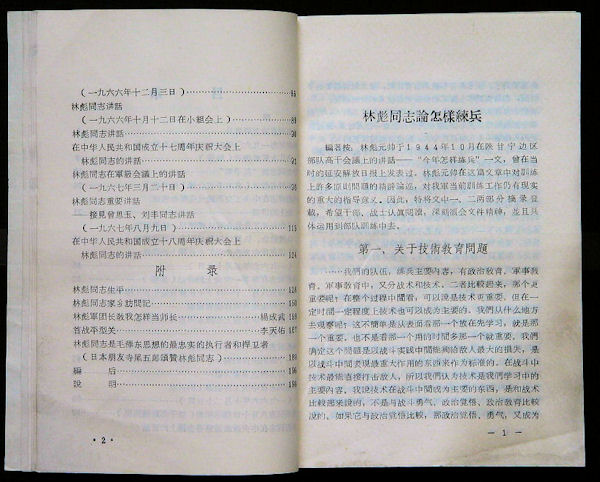 (一九六六年十二月三日)
林彪同志講話
(一九六六年十二月十二日在小組会上)
林彪同志講話 90
在中华人民共和国成立十七周年庆祝大会上
林彪同志的講話 91
林彪同志在軍級会議上的講話
(一九六七年三月二十日)
林彪同志重要講話
接見曾思玉、刘丰同志講話
(一九六七年八月九日) 115
在中华人民共和国成立十八周年庆祝大会上
林彪同志的講話 124
附录
林彪同志生平
林彪同志家乡訪問記 150
林彪軍团长教我怎样当师长 楊成武
首战平型关 李天佑
林彪同志是毛澤东思想的最忠实的执行者和捍卫者
(日本朋友寺尾五郎頌贊林彪同志)
編后 195
說明 196
·2·
林彪同志論怎樣練兵
編者按:林彪元帅于1944年10月在陕甘宁边区
部队高干会議上的讲話——“今年怎样练兵”一文,曾在当
时的延安解放日报上发表过。林彪元帅在这篇文章中对訓练
上許多原則問題的精辟論述,对我軍当前訓练工作仍有現实
的重大的指导意义。因此,特将文中一、二两部分摘录登
載,希望干部、战士认真閱讀,深刻領会文件精神,並且具
体运用到部队訓练中去。
第一、关于技術教育問題
……我們的队伍,练兵主要內容,有政治教育,軍事教
育,軍事教育中,又分战术和技术,二者比較起来,那个更
重要呢?在整个过程中間看,可以說是技术更重要,但在一
定时間一定程度上技术也可以成为主要的。我們从什么地方
去观察呢?这不簡单是从表面看那一个放在先学习,就是那
一个重要,也不是看那一个用的时間多那一个就重要。我們
确定这个問題是以战斗实践中間能夠給敌人最大的損失,是以
战斗中間表現最重大作用的东西来作为标准的。在战斗中
技术最能直接打击敌人,所以我們认为技术是我們学习中的
主要內容。我說技术在战斗中間成为主要的东西,是和战术
比較起来說的,不是与战斗勇气,政治觉悟,政治教育比較
說的,如果它与政治觉悟比較,那政治觉悟,勇气,又成为
— 1 —